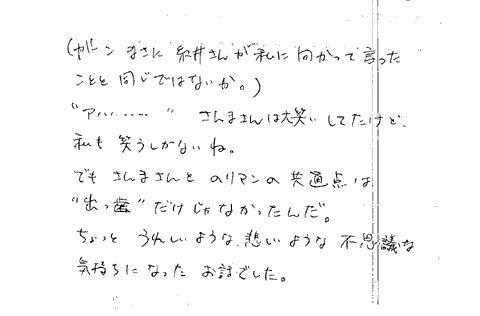 (ガーン まさに 糸井さんが私に向かって言った
ことと同じではないか。)
"アハハ‥‥‥" さんまさんは大笑いしてたけど、
私も笑うしかないね。
でも さんまさんと のりマンの共通点は
"出っ歯"だけじゃなかったんだ。
ちょっと うれしいような、悲しいような 不思議な
気持ちになった お話でした。